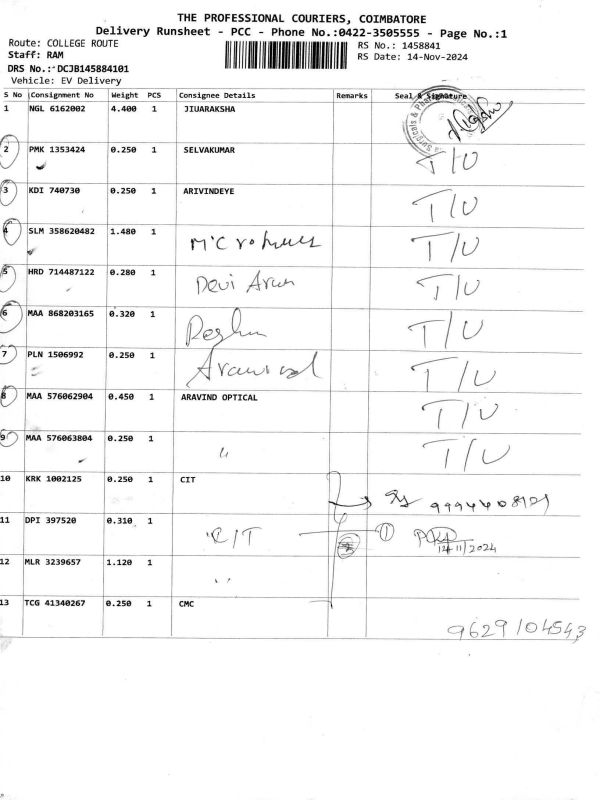 THE PROFESSIONAL COURIERS, COIMBATORE
Delivery Runsheet - PCC - Phone No.:0422-3505555 - Page No.:1
Route: COLLEGE ROUTE RS No.: 1458841
Staff: RAM RS Date: 14-Nov-2024
DRS No.: DCJB145884101
Vehicle: EV Delivery
S No Consignment No Weight PCS Consignee Details Remarks Seal & Signature
1 NGL 6162002 4.400 1 JIUARAKSHA
2 PMK 1353424 0.250 1 SELVAKUMAR T/U
3 KDI 740730 0.250 1 ARIVINDEYE T/U
4 SLM 358620482 1.480 1 T/U
5 HRD 714487122 0.280 1 Devi Arun T/U
6 MAA 868203165 0.320 1 T/U
7 PLN 1506992 0.250 1 Aravind T/U
8 MAA 576062904 0.450 1 ARAVIND OPTICAL T/U
9 MAA 576063804 0.250 1 〃 T/U
10 KRK 1002125 0.250 1 CIT
11 DPI 397520 0.310 1 CIT 1
14/11/2024
12 MLR 3239657 1.120 1 〃
13 TCG 41340267 0.250 1 CMC
9629104543